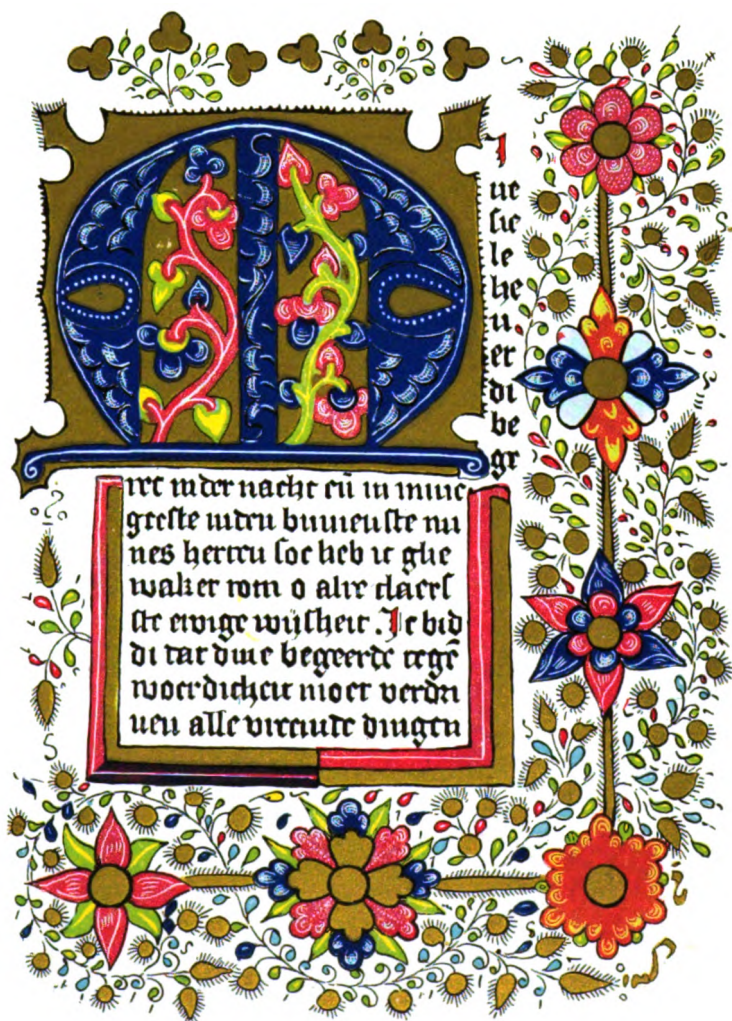 M
I
ue
sie
le
he
u
er
di
be
ge
ret in der nacht eñ in mine
geeste in den binnenste mi
nes herten soe heb ic ghe
waket o alre claers
ste ewige wijsheit. Ic bid
di dat dine begeerde tegē
woerdicheit moet verdri
uen alle dingen